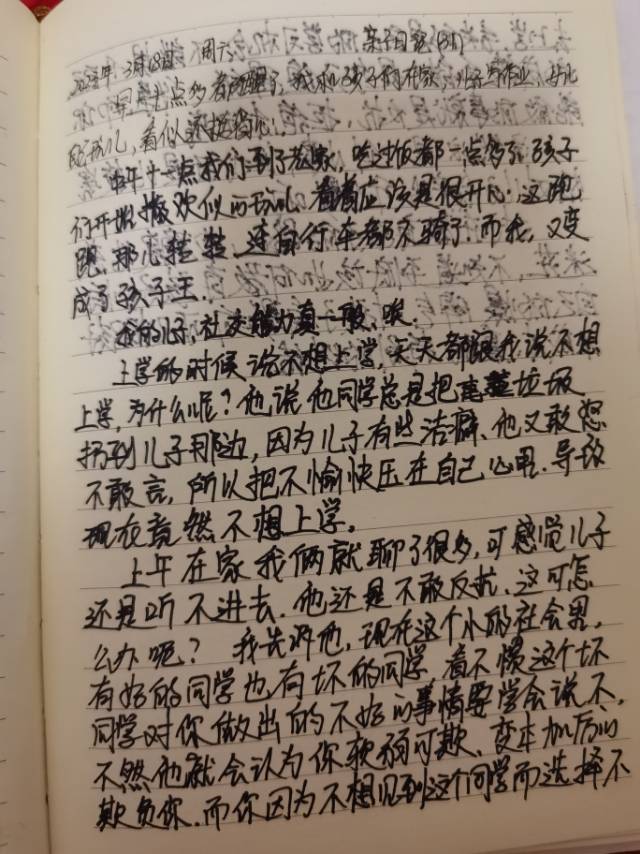 2023年3月18日 周六 亲子日记(31)
早晨六点多都醒了,我和孩子们在家,儿子写作业,女儿
玩儿,看似还挺
中午十一点我们到了老家,吃过饭都一点多了,孩子
们开始撒欢似的玩儿,看着应该是很开心,这跑
跑,那儿转转,连自行车都不骑了.而我,又变
成了孩子王.
我的儿子,社交能力真一般,唉.
上学的时候说不想上学,天天都跟我说不想
上学,为什么呢?他说他同学总是把垃圾
扔到儿子那边,因为儿子有些洁癖、他又敢怒
不敢言,所以把不愉快压在自己心里.导致
现在竟然不想上学。
上午在家我俩就聊了很多,可感觉儿子
还是听不进去.他还是不敢反抗.这可怎
么办呢?我告诉他,现在这个小的社会里,
有好的同学也有坏的同学,看不惯这个坏
同学对你做出的不好的事情要学会说不,
不然他就会认为你软弱可欺、变本加厉的
欺负你.而你因为不想见到这个同学而选择不